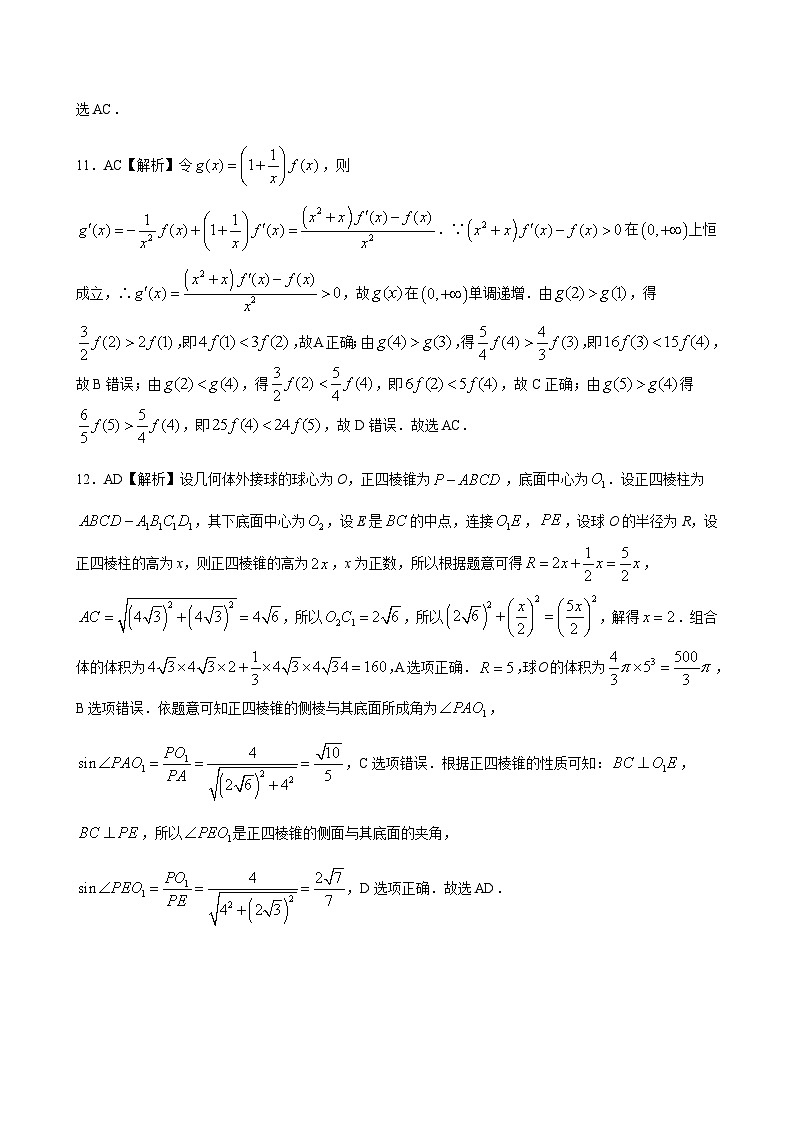 选 AC．
11．AC【解析】令 $g(x)=\left(1+\frac{1}{x}\right)f(x)$，则
$g'(x)=-\frac{1}{x^2}f(x)+\left(1+\frac{1}{x}\right)f'(x)=\frac{(x^2+x)f'(x)-f(x)}{x^2}$．∵$(x^2+x)f'(x)-f(x)>0$ 在 $(0,+\infty)$ 上恒
成立，∴$g'(x)=\frac{(x^2+x)f'(x)-f(x)}{x^2}>0$，故 $g(x)$ 在 $(0,+\infty)$ 单调递增．由 $g(2)>g(1)$，得
$\frac{3}{2}f(2)>2f(1)$，即 $4f(1)<3f(2)$，故 A 正确；由 $g(4)>g(3)$，得 $\frac{5}{4}f(4)>\frac{4}{3}f(3)$，即 $16f(3)<15f(4)$，
故 B 错误；由 $g(2)<g(4)$，得 $\frac{3}{2}f(2)<\frac{5}{4}f(4)$，即 $6f(2)<5f(4)$，故 C 正确；由 $g(5)>g(4)$ 得
$\frac{6}{5}f(5)>\frac{5}{4}f(4)$，即 $25f(4)<24f(5)$，故 D 错误．故选 AC．
12．AD【解析】设几何体外接球的球心为 O，正四棱锥为 $P-ABCD$，底面中心为 $O_1$．设正四棱柱为
$ABCD-A_1B_1C_1D_1$，其下底面中心为 $O_2$，设 E 是 $BC$ 的中点，连接 $O_1E$，$PE$，设球 O 的半径为 R，设
正四棱柱的高为 x，则正四棱锥的高为 $2x$，x 为正数，所以根据题意可得 $R=2x+\frac{1}{2}x=\frac{5}{2}x$，
$AC=\sqrt{(4\sqrt{3})^2+(4\sqrt{3})^2}=4\sqrt{6}$，所以 $O_2C_1=2\sqrt{6}$，所以 $(2\sqrt{6})^2+\left(\frac{x}{2}\right)^2=\left(\frac{5x}{2}\right)^2$，解得 $x=2$．组合
体的体积为 $4\sqrt{3}\times4\sqrt{3}\times2+\frac{1}{3}\times4\sqrt{3}\times4\sqrt{3}4=160$，A 选项正确．$R=5$，球 O 的体积为 $\frac{4}{3}\pi\times5^3=\frac{500}{3}\pi$，
B 选项错误．依题意可知正四棱锥的侧棱与其底面所成角为 $\angle PAO_1$，
$\sin\angle PAO_1=\frac{PO_1}{PA}=\frac{4}{\sqrt{(2\sqrt{6})^2+4^2}}=\frac{\sqrt{10}}{5}$，C 选项错误．根据正四棱锥的性质可知：$BC\perp O_1E$，
$BC\perp PE$，所以 $\angle PEO_1$ 是正四棱锥的侧面与其底面的夹角，
$\sin\angle PEO_1=\frac{PO_1}{PE}=\frac{4}{\sqrt{4^2+(2\sqrt{3})^2}}=\frac{2\sqrt{7}}{7}$，D 选项正确．故选 AD．